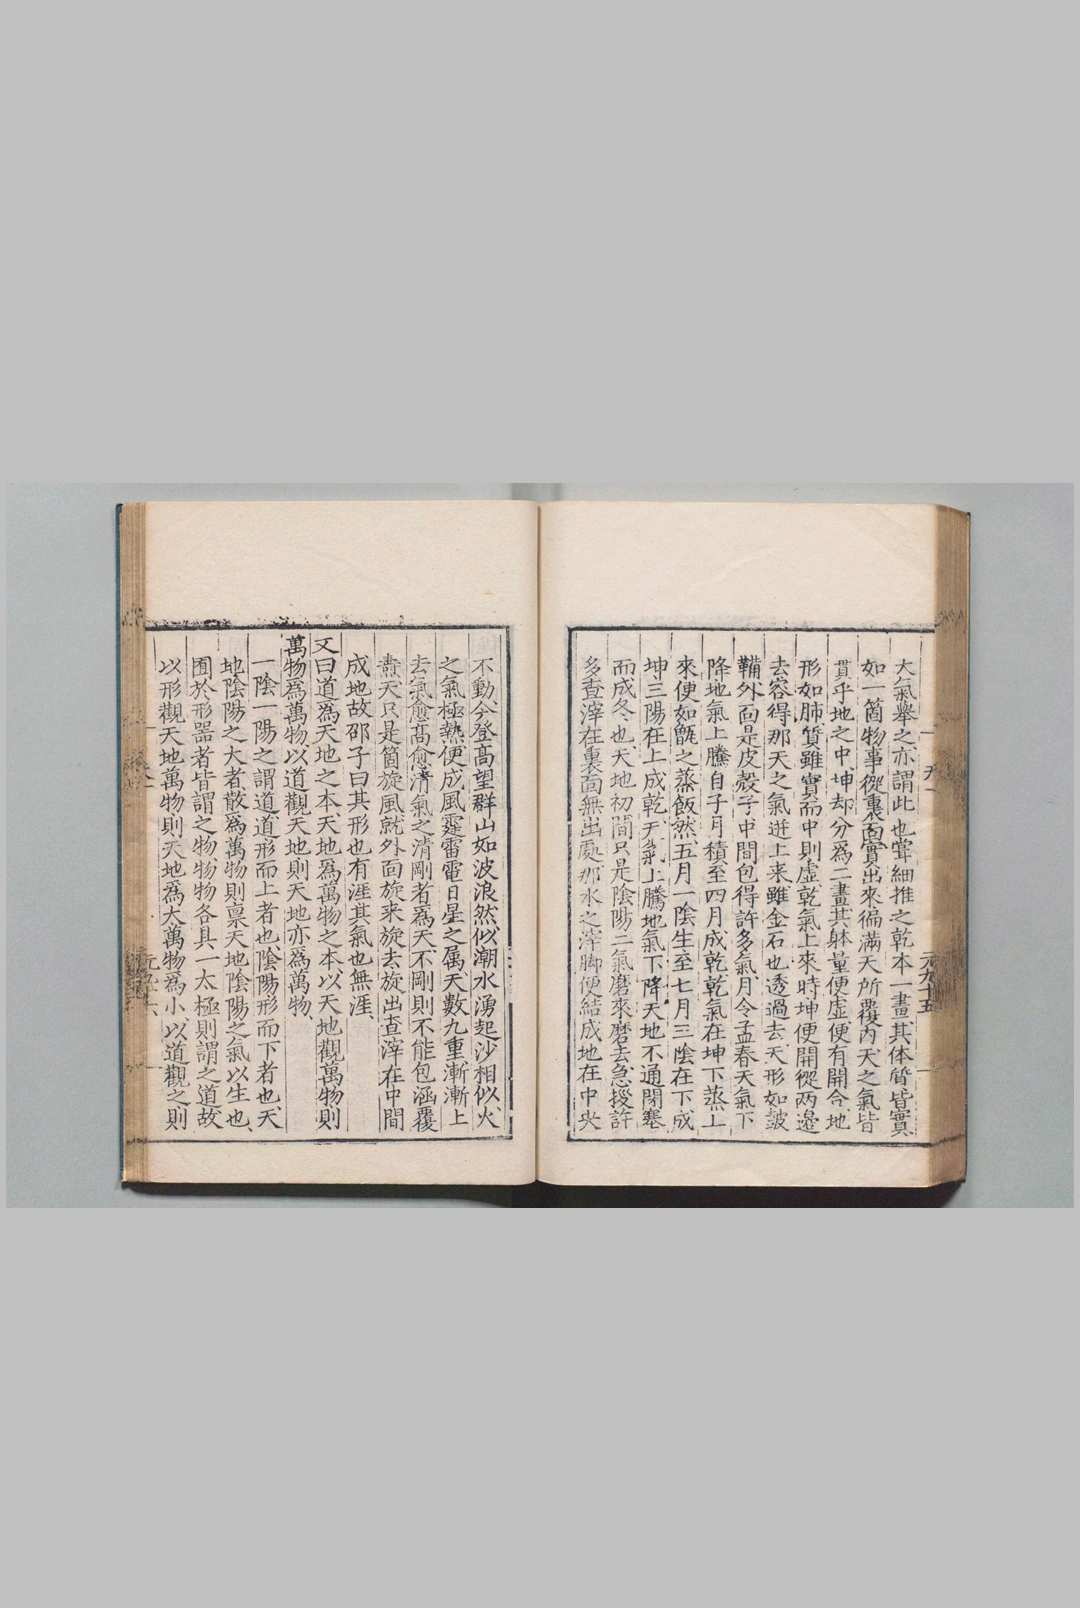 大氣舉之亦謂此也嘗細推之乾本一畫其体質皆實
如一箇物事從裏面實出來徧滿天所覆内天之氣皆
貫乎地之中坤却分爲二畫其躰量便虛便有開合地
形如肺質雖實而中則虛乾氣上來時坤便開從两邉
去容得那天之氣迸上來雖金石也透過去天形如皷
鞴外面是皮殼子中間包得許多氣月令孟春天氣下
降地氣上騰自子月積至四月成乾乾氣在坤下蒸上
來便如甑之蒸飯然五月一陰生至七月三陰在下成
坤三陽在上成乾天氣上騰地氣下降天地不通閉塞
而成冬也天地初間只是陰陽二氣磨來磨去急拶許
多查滓在裏面無出處那水之滓脚便結成地在中央
不動今登髙望群山如波浪然似潮水湧起沙相似火
之氣極熱便成風霆雷電日星之属天數九重漸漸上
去氣愈髙愈清氣之清剛者爲天不剛則不能包涵覆
燾天只是箇旋風就外面旋來旋去旋出查滓在中間
成地故邵子曰其形也有涯其氣也無涯
又曰道爲天地之本天地爲萬物之本以天地觀萬物則
萬物爲萬物以道觀天地則天地亦爲萬物
一陰一陽之謂道道形而上者也陰陽形而下者也天
地陰陽之大者散爲萬物則禀天地陰陽之氣以生也
囿於形器者皆謂之物物物各具一太極則謂之道故
以形觀天地萬物則天地爲大萬物爲小以道觀之則